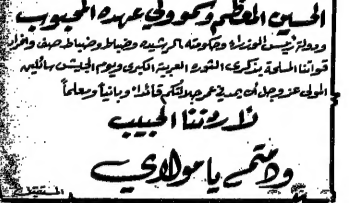 الحسين المعظم وسمو ولي عهده المحبوب
ودولة رئيس الوزراء وحكومته الرشيده وضباط وضباط صف وافراد
قواتنا المسلحة بذكرى الثورة العربية الكبرى ويوم الجيش سائلين
المولى عز وجل أن يمد في عمر جلالتكم قائداً وبانياً ومعلماً
لأردننا الحبيب
ودمتم يا مولاي